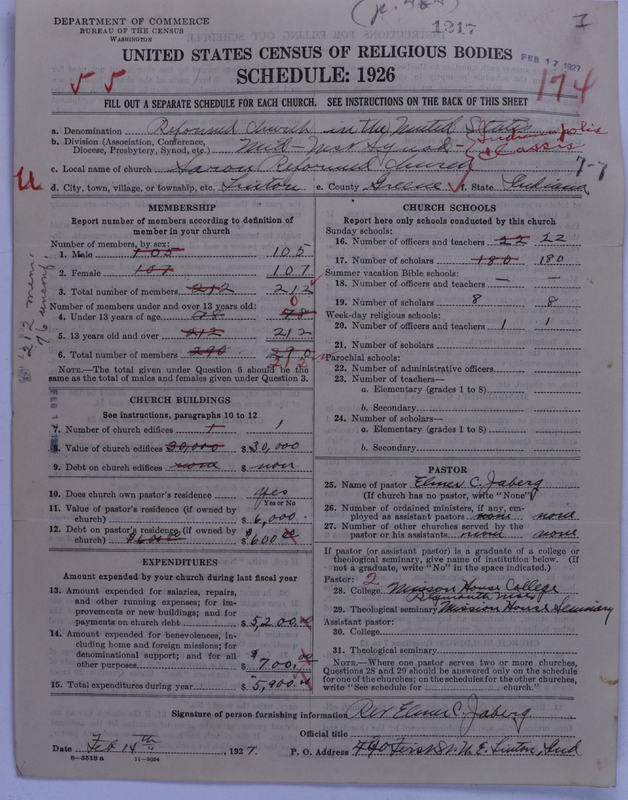 (p. 484)
1217
I
DEPARTMENT OF COMMERCE
BUREAU OF THE CENSUS
WASHINGTON
UNITED STATES CENSUS OF RELIGIOUS BODIES
FEB 17 1927
SCHEDULE: 1926
5 5
174
FILL OUT A SEPARATE SCHEDULE FOR EACH CHURCH. SEE INSTRUCTIONS ON THE BACK OF THIS SHEET
a. Denomination Reformed Church in the United States
b. Division (Association, Conference, Diocese, Presbytery, Synod, etc.) Mid-West Synod - Indianapolis Classis
c. Local name of church Saron Reformed Church
7-7
u
d. City, town, village, or township, etc. Linton e. County Greene f. State Indiana
MEMBERSHIP
Report number of members according to definition of
member in your church
Number of members, by sex:
1. Male 105 105
2. Female 107 107
3. Total number of members 212 212
Number of members under and over 13 years old:
0
4. Under 13 years of age 78 78
5. 13 years old and over 212 212
6. Total number of members 290 290
212
NOTE.—The total given under Question 6 should be the
same as the total of males and females given under Question 3.
212 mem.
76 uncong.
CHURCH BUILDINGS
See instructions, paragraphs 10 to 12
7. Number of church edifices 1 1
8. Value of church edifices 30,000 $30,000
9. Debt on church edifices none $ none
10. Does church own pastor's residence Yes
Yes or No
11. Value of pastor's residence (if owned by
church) $6,000.
12. Debt on pastor's residence (if owned by
church) $600 00 $600 00
EXPENDITURES
Amount expended by your church during last fiscal year
13. Amount expended for salaries, repairs,
and other running expenses; for im-
provements or new buildings; and for
payments on church debt $5,200.00
14. Amount expended for benevolences, in-
cluding home and foreign missions; for
denominational support; and for all
other purposes $700.00
15. Total expenditures during year $5,900.00
CHURCH SCHOOLS
Report here only schools conducted by this church
Sunday schools:
16. Number of officers and teachers 22 22
17. Number of scholars 180 180
Summer vacation Bible schools:
18. Number of officers and teachers — —
19. Number of scholars 8 8
Week-day religious schools:
20. Number of officers and teachers 1 1
21. Number of scholars
Parochial schools:
22. Number of administrative officers
23. Number of teachers—
a. Elementary (grades 1 to 8)
b. Secondary
24. Number of scholars—
a. Elementary (grades 1 to 8)
b. Secondary
PASTOR
25. Name of pastor Elmer C. Jaberg
(If church has no pastor, write "None")
26. Number of ordained ministers, if any, em-
ployed as assistant pastors none none
27. Number of other churches served by the
pastor or his assistants none none
If pastor (or assistant pastor) is a graduate of a college or
theological seminary, give name of institution below. (If
not a graduate, write "No" in the space indicated.)
Pastor: 2
28. College Mission House College
Plymouth Wis.
29. Theological seminary Mission House Seminary
Assistant pastor:
30. College
31. Theological seminary
NOTE.—Where one pastor serves two or more churches,
Questions 28 and 29 should be answered only on the schedule
for one of the churches; on the schedules for the other churches,
write "See schedule for church."
Signature of person furnishing information Rev Elmer C. Jaberg.
Official title
Date Feb 14th, 1927. P. O. Address 490 First St. N. E. Linton, Ind
8-5518 a 11-9054